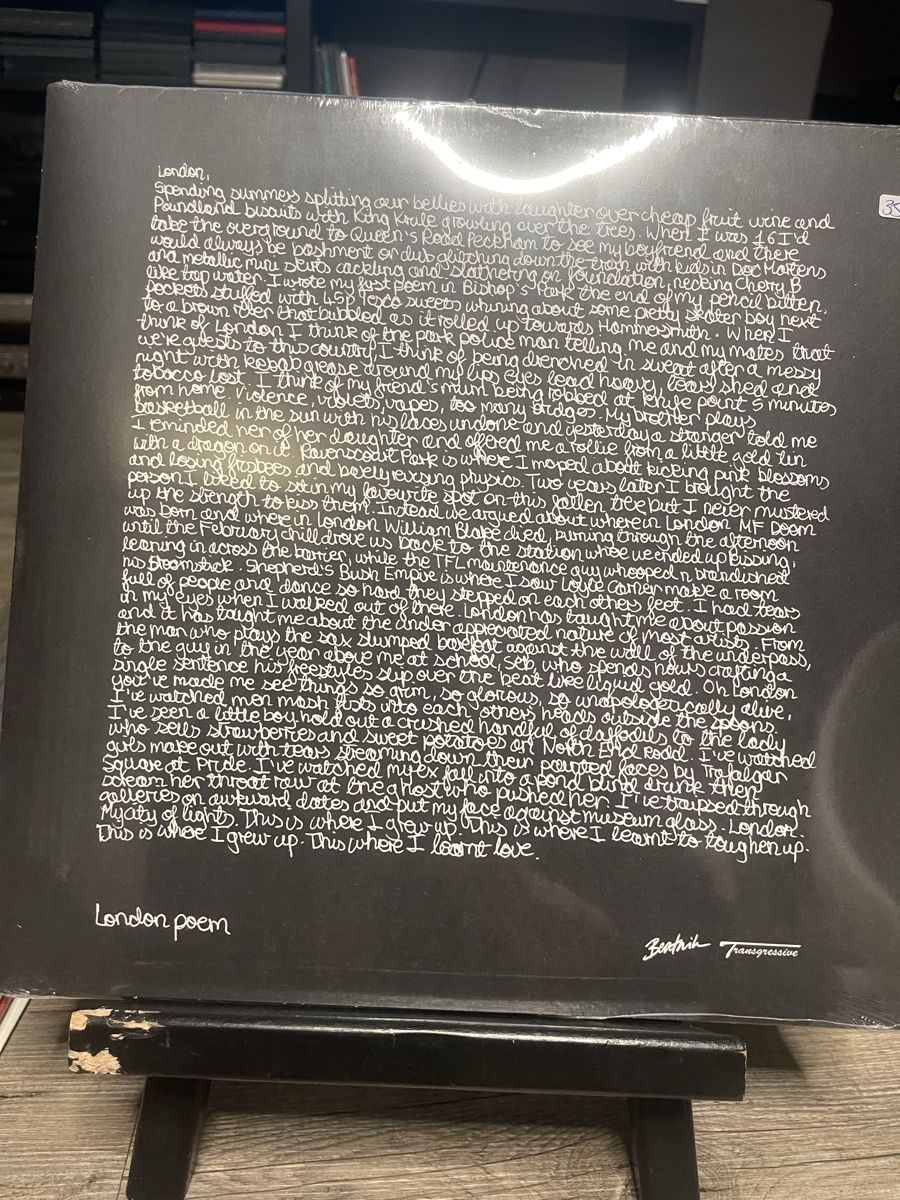 London,
Spending summers splitting our bellies with laughter over cheap fruit wine and
Poundland biscuits with King Krule growling over the trees. When I was 16 I'd
take the overground to Queen's Road Peckham to see my boyfriend and there
would always be bashment or dub glitching down the train with kids in Doc Martens
and metallic mini skirts cackling and slathering on foundation, necking Cherry B
like tap water. I wrote my first poem in Bishop's Park the end of my pencil bitten,
pockets stuffed with 45p Tesco sweets whining about some pretty skater boy next
to a brown river that bubbled as it rolled up towards Hammersmith. When I
think of London I think of the park police man telling me and my mates that
we're guests to this country I think of being drenched in sweat after a messy
night with kebab grease around my lips eyes lead heavy, tears shed and
tobacco lost. I think of my friend's mum being robbed at knife point 5 minutes
from home. Violence, violets, vapes, too many bridges. My brother plays
basketball in the sun with his laces undone and yesterday a stranger told me
I reminded her of her daughter and offered me a rollie from a little gold tin
with a dragon on it. Ravenscourt Park is where I moped about kicking pink blossoms
and losing frisbees and barely revising physics. Two years later I brought the
person I liked to sit in my favourite spot on this fallen tree but I never mustered
up the strength to kiss them. Instead we argued about where in London MF Doom
was born and where in London William Blake died, purring through the afternoon
until the February chill drove us back to the station where we ended up kissing,
leaning in across the barrier, while the TFL maintenance guy whooped n brandished
his broomstick. Shepherd's Bush Empire is where I saw Loyle Carner make a room
full of people and dance so hard they stepped on each others feet. I had tears
in my eyes when I walked out of there. London has taught me about passion
and it has taught me about the under appreciated nature of most artists. From
the man who plays the sax slumped barefoot against the wall of the underpass,
to the guy in the year above me at school, Seb, who spends hours crafting a
single sentence his freestyles slip over the beat like liquid gold. Oh London
you've made me see things so grim, so glorious, so unapologetically alive,
I've watched men mash fists into each others heads outside the spoons.
I've seen a little boy hold out a crushed handful of daffodils to the lady
who sells strawberries and sweet potatoes on North End Road. I've watched
girls make out with tears streaming down their painted faces by Trafalgar
Square at Pride. I've watched my ex fall into a pond blind drunk then
scream her throat raw at the ghost who pushed her. I've traipsed through
galleries on awkward dates and put my face against museum glass. London.
My city of lights. This is where I grew up. This is where I learnt to toughen up.
This is where I grew up. This where I learnt love.
London poem
Beatnik Transgressive
35